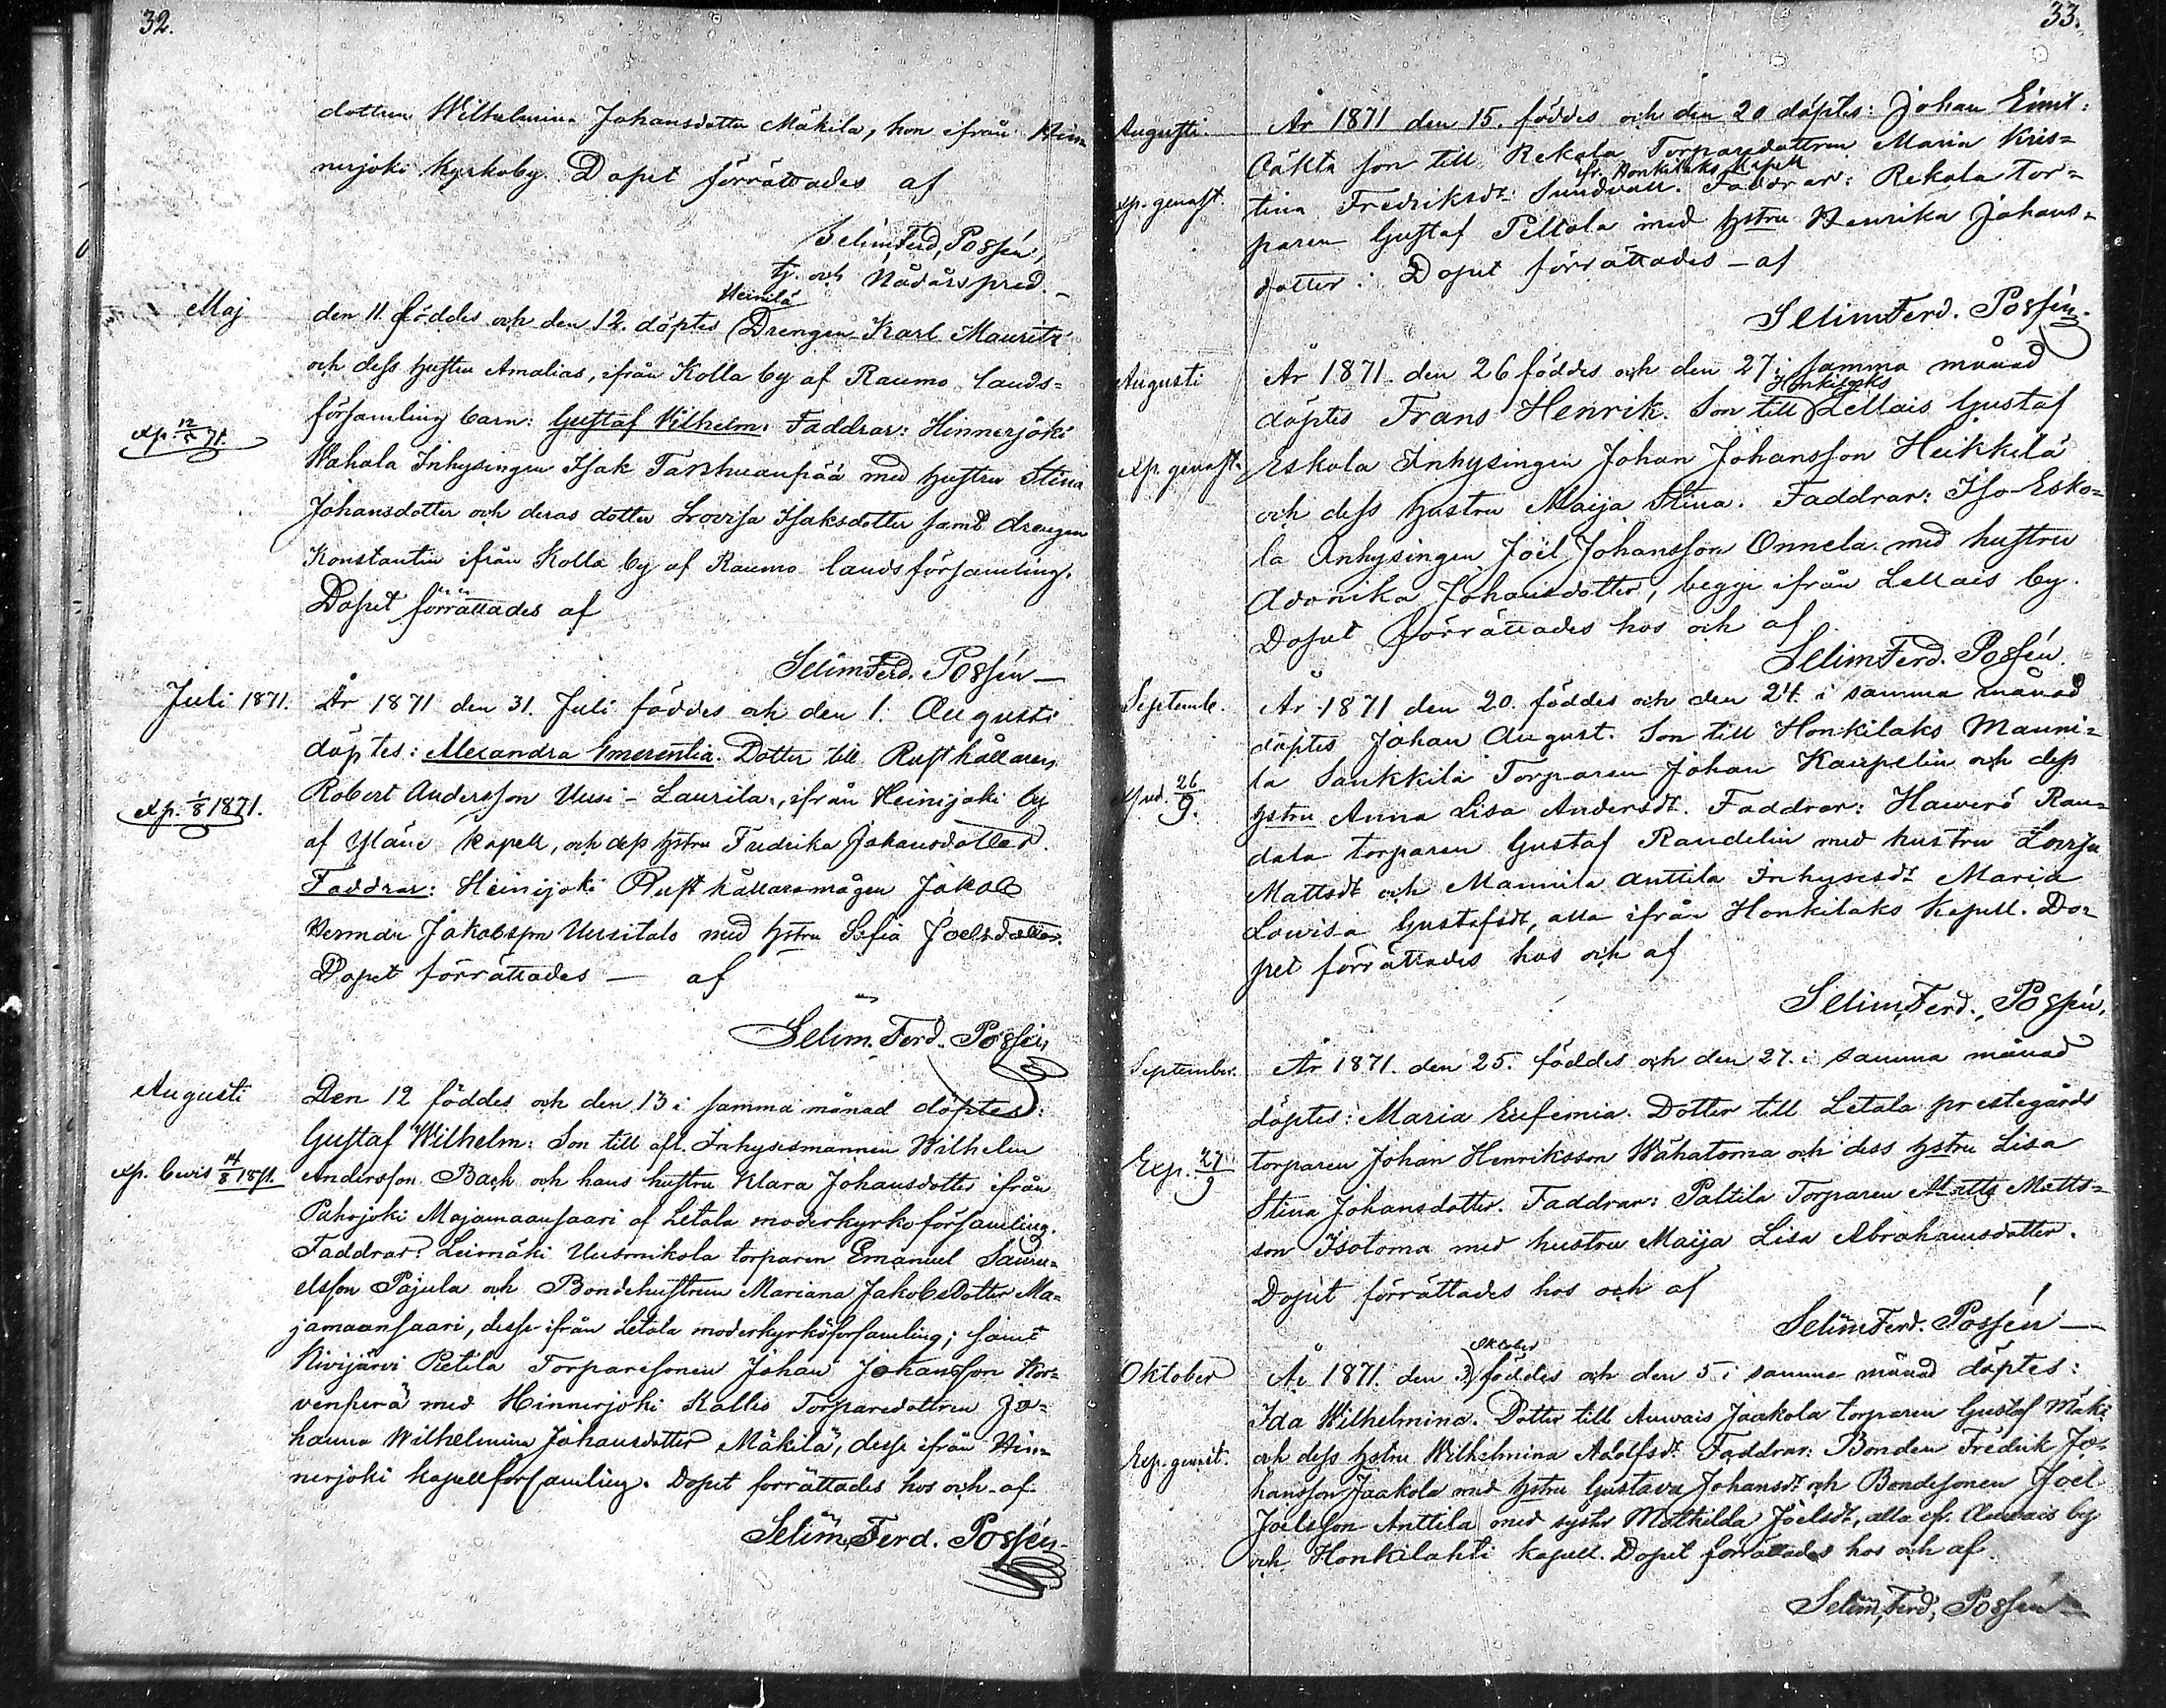 32.
dottren Wilhelmina Johansdotter Mäkilä, hon ifrån Hin-
nerjoki kyrkoby. Dopet förrättades af
Selim Ferd. Possén,
tj. och Nådårspred.
Maj
Heinilä
den 11. föddes och den 12. döptes Drengen Karl Maurits
och dess hustru Amalias, ifrån Kolla by af Raumo lands-
församling barn: Gustaf Wilhelm. Faddrar: Hinnerjoki
exp. 12/5 71.
Wahala Inhysingen Isak Tarhuanpää med hustru Stina
Johansdotter och deras dotter Lovisa Isaksdotter samt drengen
Konstantin ifrån Kolla by af Raumo landsförsamling.
Dopet förrättades af
Selim Ferd. Possén
Juli 1871.
År 1871 den 31. Juli föddes och den 1. Augusti
döptes: Alexandra Emerentia. Dotter till Rusthållaren
exp. 1/8 1871.
Robert Andersson Uusi-Laurila, ifrån Heinijoki by
af Yläne kapell, och dess hstru Fredrika Johansdotter.
Faddrar: Heinijoki Rusthållaremågen Jakob
Jakobsson Uusitalo med hstru Sofia Joelsdotter.
Dopet förrättades — af
Selim. Ferd. Possén
Augusti
Den 12 föddes och den 13 i samma månad döptes:
Gustaf Wilhelm: Son till afl. Inhysesmannen Wilhelm
exp. bevis 14/8 1871.
Andersson Back och hans hustru Klara Johansdotter ifrån
Pahojoki Majamaansaari af Letala moderkyrkoförsamling.
Faddrar: Leimäki Uusmikola torparen Emanuel Samu-
elsson Pajula och Bondehustrun Mariana Jakobsdotter Ma-
jamaansaari, desse ifrån Letala moderkyrkoförsamling; samt
Kivijärvi Pietila Torparesonen Johan Johansson Kor-
venperä med Hinnerjoki Kallio Torparedottren Jo-
hanna Wilhelmina Johansdotter Mäkilä, desse ifrån Hin-
nerjoki kapellförsamling. Dopet förrättades hos och af
Selim Ferd. Possén
33.
Augusti.
År 1871 den 15. föddes och den 20 döptes: Johan Emil:
Oäkta son till Rekola Torparedottren Maria Kris-
fr. Honkilaks kapell
exp. genast.
tina Fredriksdt: Sundvall. Faddrar: Rekola tor-
paren Gustaf Peltola med hstru Henrika Johans-
dotter: Dopet förrättades — af
Selim Ferd. Possén.
Augusti
År 1871 den 26 föddes och den 27 i samma månad
Honkijoks
döptes Frans Henrik. Son till Lellais Gustaf
exp. genast.
Eskola Inhysingen Johan Johansson Heikkilä
och dess hustru Maija Stina. Faddrar: Iso-Esko-
la Inhysingen Joel Johansson Onnela med hustru
Adonika Johansdotter, begge ifrån Lellais by.
Dopet förrättades hos och af
Selim Ferd. Possén.
Septemb.
År 1871 den 20. föddes och den 24. i samma månad
döptes Johan August. Son till Honkilaks Manni-
la Sankkila Torparen Johan Kaupelin och dess
26/9.
hstru Anna Lisa Andersdt. Faddrar: Haverö Rau-
dala torparen Gustaf Randelin med hustru Lovisa
Mattsdt och Mannila Anttila Inhysesdt Maria
Lovisa Gustafsdt, alla ifrån Honkilaks kapell. Do-
pet förrättades hos och af
Selim Ferd. Possén.
September.
År 1871. den 25. föddes och den 27. i samma månad
döptes: Maria Eufemia. Dotter till Letala prestegårds
Exp. 27/9
torparen Johan Henriksson Wähatoma och dess hstru Lisa
Stina Johansdotter. Faddrar: Paltila Torparen Matts Matts-
son Isotoma med hustru Maija Lisa Abrahamsdotter.
Dopet förrättades hos och af
Selim Ferd. Possén
Oktober
Oktober
År 1871. den 3. föddes och den 5 i samma månad döptes:
Ida Wilhelmina. Dotter till Auvais Jaakola torparen Gustaf Mäki
Exp. genast.
och dess hstru Wilhelmina Adolfsdt. Faddrar: Bonden Fredrik Jo-
hansson Jaakola med hstru Gustava Johansdt och Bondesonen Joel
Joelsson Anttila med syster Mathilda Joelsdt, alla ifr. Auvais by
och Honkilahti kapell. Dopet förrättades hos och af
Selim Ferd. Possén